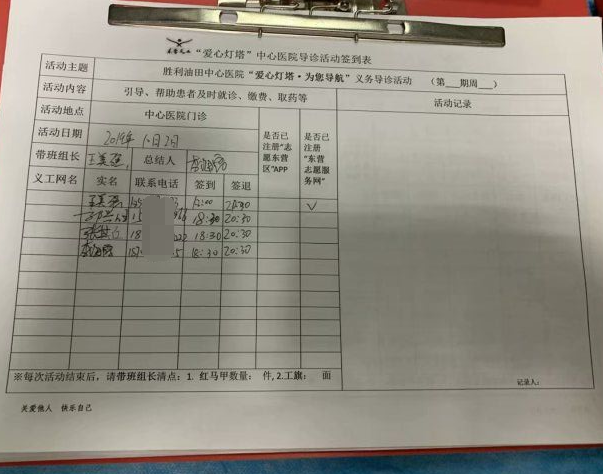 “爱心灯塔”中心医院导诊活动签到表
活动主题 胜利油田中心医院“爱心灯塔·为您导航”义务导诊活动 （第__期周__）
活动内容 引导、帮助患者及时就诊、缴费、取药等 活动记录
活动地点 中心医院门诊
活动日期 2019年 月2日
是否已注册“志愿东营区”APP
是否已注册“东营志愿服务网”
带班组长 总结人
义工网名 实名 联系电话 签到 签退
20:30 ✓
18:30 20:30
18 18:30 20:30
18:30 20:30
※每次活动结束后，请带班组长清点：1. 红马甲数量： 件, 2.工旗： 面
记录人：
关爱他人 快乐自己